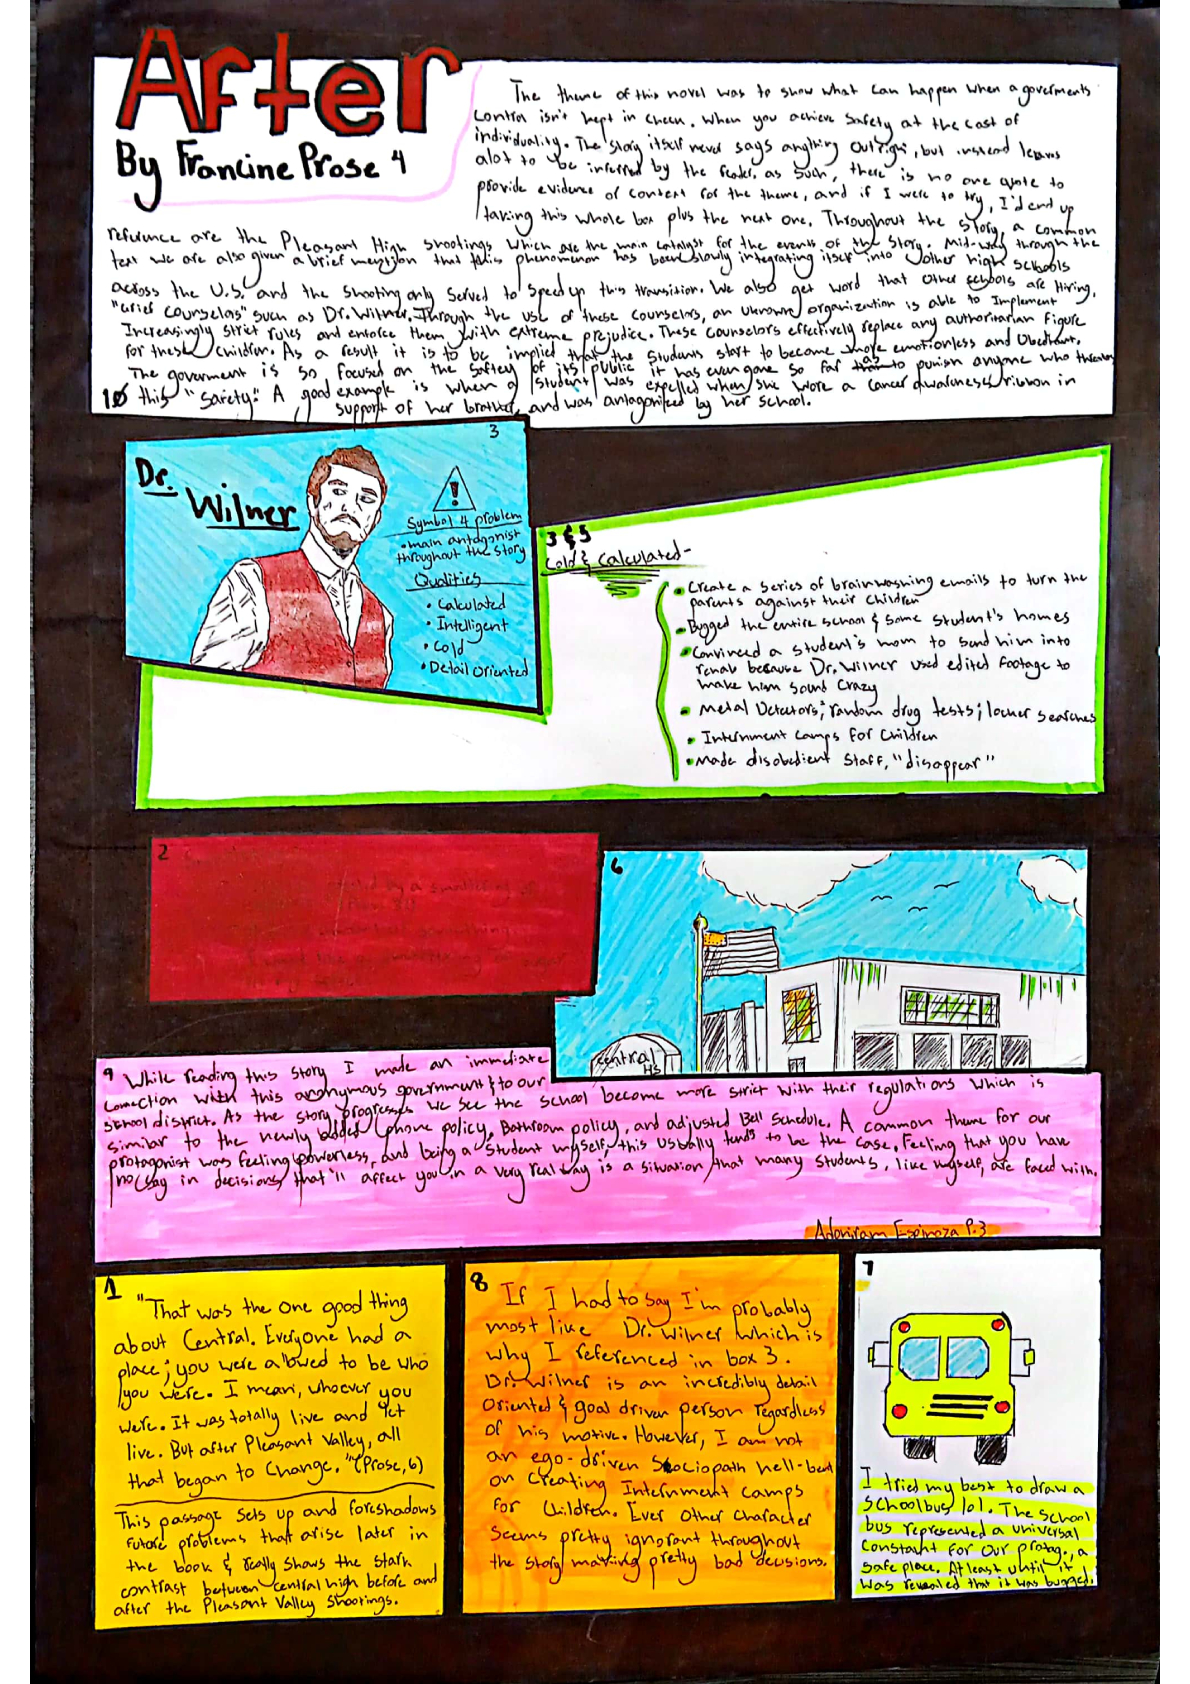 After
By Francine Prose 4
The theme of this novel was to show what can happen when a goverments
Contra isn't kept in check. When you achieve Safety at the cost of
individuality. The story itself never says anything outright, but instead leaves
alot to be inferred by the reader, as such, there is no one quote to
provide evidence of context for the theme, and if I were to try, I'd end up
taking this whole box plus the next one. Throughout the story, a common
refurence are the Pleasant High shootings which are the main catalyst for the events of the story. Mid-way through the
text we are also given a brief mention that this phenomenon has been slowly integrating itself into other high schools
across the U.S. and the shooting only served to speed up this transition. We also get word that other schools are Hiring,
"Grief counselas" such as Dr. Wilner. Through the use of these counselors, an uknown organization is able to Implement
Increasingly strict rules and enforce them with extreme prejudice. These counselors effectively replace any authoritarian figure
for these children. As a result it is to be implied that the students start to become more emotionless and obedient.
The goverment is so focused on the saftey of its public it has even gone so far as to punish anyone who threaten
10 this "safety." A good example is when a student was expelled when she wore a cancer awareness ribbon in
support of her brother, and was antagonized by her school.
3
Dr.
Wilner
!
Symbol 4 problem
• main antagonist
throughout the story
Qualities
• Calculated
• Intelligent
• Cold
• Detail Oriented
3 & 5
Cold & Calculated-
• Create a series of brainwashing emails to turn the
parents against their children
• Bugged the entire school & some student's homes
• Convinced a student's mom to send him into
rehab because Dr. Wilner used edited footage to
make him sound crazy
• Metal Detectors; random drug tests; locker searches
• Internment camps for children
• Made disobedient staff, "disappear"
2
6
Central
HS
9 While reading this story I made an immediate
connection with this anonymous government & to our
school district. As the story progresses we see the school become more strict with their regulations which is
similar to the newly added phone policy, Bathroom policy, and adjusted Bell Schedule. A common theme for our
protagonist was feeling powerless, and being a student myself, this usually tends to be the case. Feeling that you have
no say in decisions that'll affect you in a very real way is a situation that many students, like myself, are faced with.
Adoniram Espinoza P.3
1
"That was the one good thing
about Central. Everyone had a
place; you were allowed to be who
you were. I mean, whoever you
were. It was totally live and let
live. But after Pleasant Valley, all
that began to change." (Prose, 6)
This passage sets up and foreshadows
future problems that arise later in
the book & really shows the stark
contrast between central high before and
after the Pleasant Valley Shootings.
8 If I had to say I'm probably
most like Dr. Wilner which is
why I referenced in box 3.
Dr. Wilner is an incredibly detail
oriented & goal driven person regardless
of his motive. However, I am not
an ego-driven Sociopath hell-bent
on creating Internment camps
for children. Ever other character
seems pretty ignorant throughout
the story making pretty bad decisions.
7
I tried my best to draw a
schoolbus lol. The school
bus represented a universal
constant for our protag., a
safe place. At least until it
was revealed that it was bugged.